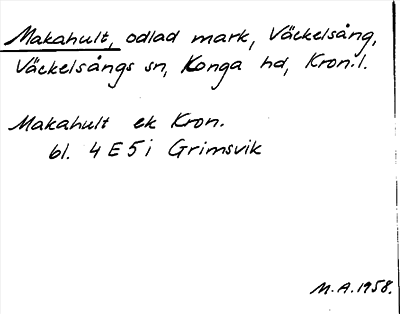 Makahult, odlad mark, Väckelsång,
Väckelsångs sn, Konga hd, Kron.l.
Makahult ek Kron.
bl. 4 E 5 i Grimsvik
M.A. 1958.